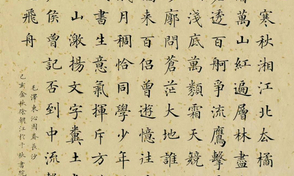 寒秋湘江北去橘
萬山紅遍層林盡
透百舸爭流鷹擊
淺底萬類霜天競
廓問蒼茫大地誰
來百侶曾遊憶往
月稠恰同學少年
書生意氣揮斥方
山激揚文字糞土
侯曾記否到中流
飛舟
毛澤東沁園春長沙